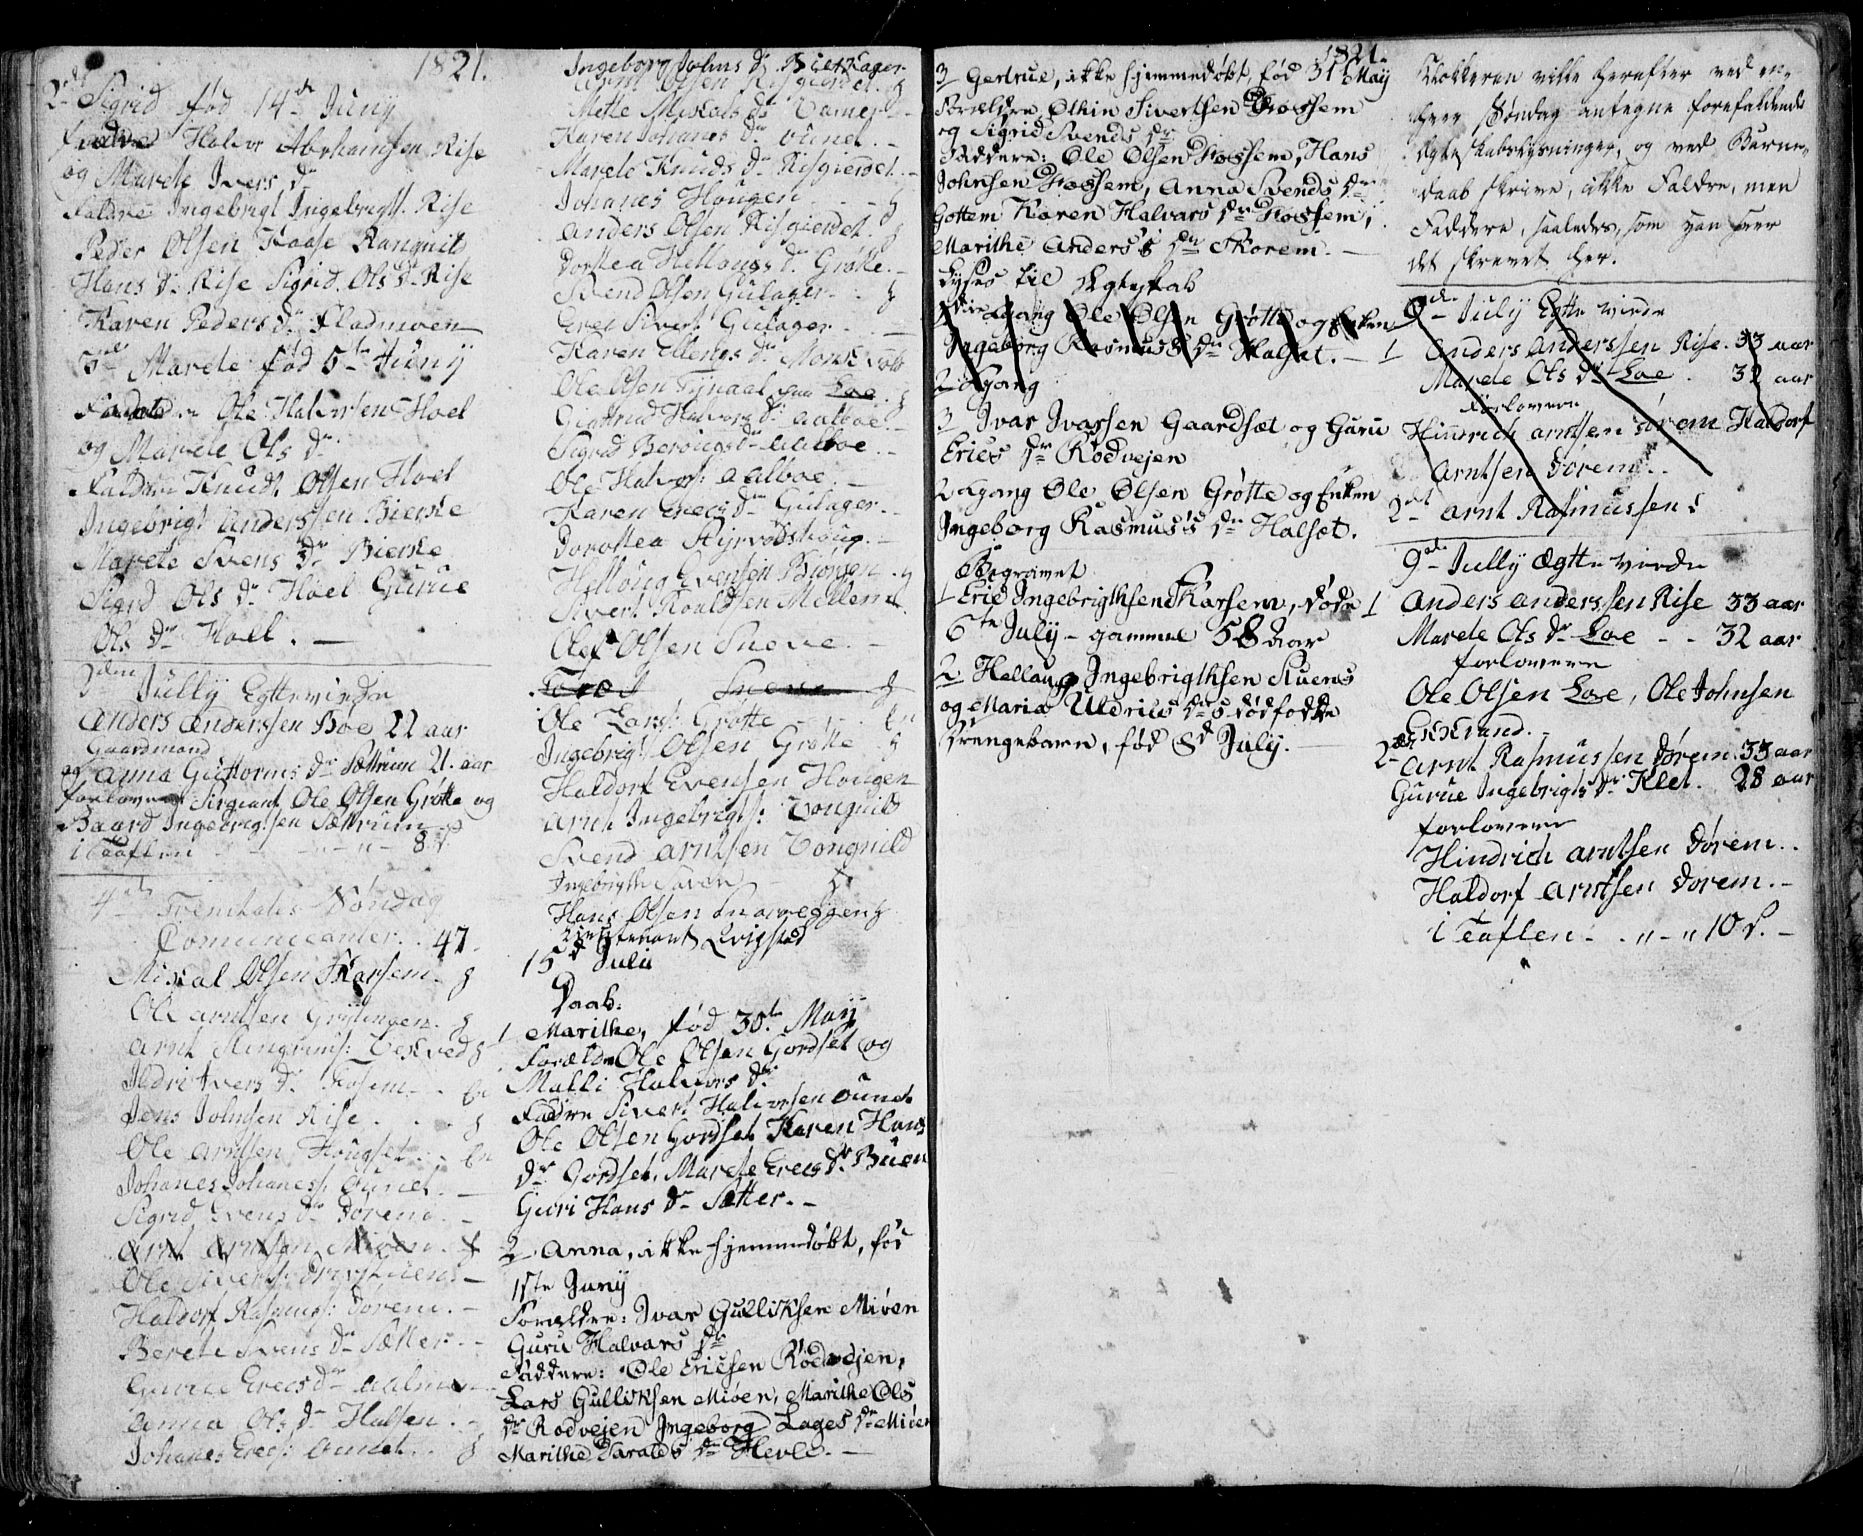 1821.
2den Sigrid fød 14de Juny
Halvor Abrhamsen Rise
og Marete Ivers Dr
Faldre Ingebrigt Ingebrigts. Rise
Peder Olsen Kaase Ranguild
Hans Dr Rise Sigrid Ols Dr Rise
Karen Peders Dr Fladmoen
3de Marete fød 5te Juny
Ole Halvorsen Hoel
og Marete Ols Dr
Faldre Knud Olsen Hoel
Ingebrigt Anderssen Bierke
Marete Svens Dr Bierke
Sigrd Ols Dr Hoel Gurue
Ols Dr Hoel. —
Jully Egtteviede
Anders Anderssen Boe 22 aar
Gaardmand
og Anna Guttorms Dr Sættrum 21. aar
forlovere Sirgiant Ole Olsen Grøtte og
Baard Ingebrigtsen Sættrum
i Taaflen - - 8 s.
4de Trenitatis Søndag
Comunecanter. 47.
Mikal Olsen Karsem. g
Ole Arntsen Grytingen. g
Arnt
Ildri Ivers Dr Fosem. En
Jens Johnsen Rise . . . g
Ole Arntsen Hougset. . En
Johanes Johaness. Ounet. —
Sigrid Svens Dr Dørem. —
Arnt Arntsen Miøen. g
Ole Sivertss.
Haldorf Rasmuss: Dørem. —
Berete Svens Dr Sætter. —
Gurue Erecs Dr Aalmo
Anna Ols Dr Halsen. -
Johanes Erecs: Ounet. . g
Ingeborg Johns Dr Bierkager
Arnt Olsen Risgierdet. g
Mette Mikals Dr
Karen Johanes Dr Ounet. —
Marete Knuds Dr Risgierdet. —
Johanes Hougen . . . g
Anders Olsen Risgierdet. g
Dorttea Hellougs Dr Grøtte. —
Svend Olsen Gulager. . g
Erec Sivert Gulager. —
Karen Ellengs Dr
Ole Olsen Loe. g
Giertrud Halvors Dr Aalboe. —
Sigrid Dr Aalboe. —
Ole Halvors: Aalboe. —
Karen Erecs Dr Gulager. —
Dorottea Styrvoldshoug. —
Helloug Evensen Biønsen. g
Sivert Roaldsen Mellem
Olef Olsen Sneve. —
Sneve g
Ole Lars: Grøtte - - En
Ingebrigt Olsen Grøtte g
Haldorf Evensen Hougen
Arnt Ingebrigts: Tonguild
Svend Arntsen Tonguild
Ingebrigth
Hans Olsen
Lieutenant
15d Juli
Daab.
1 Marithe, fød 30te May
Forældre Ole Olsen Gordset og
Malli Halvors Dr
Fadre Sivert Halvorsen Ounet
Ole Olsen Gordset Karen Hans
Dr Gordset. Marete Erecs Dr Buen
Guri Hans Dr Sætter. —
2. Anna, ikke hjemmedøbt, fød
1ste Juny
Forældre: Ivar Gulliksen Miøen
Guru Halvars Dr
Faddere: Ole Ericsen Rødvejen,
Lars Gulliksen Miøen, Marithe Ols
Dr Rødvejen Ingeborg Lages Dr Miøen
Marithe Haralds Dr Hevle. —
1821.
3 Gertrue, ikke hjemmedøbt, fød 31te May
Forældre Ølkin Sivertsen Fossem
og Sigrid Svends Dr
Faddere: Ole Olsen Fossem, Hans
Johnsen Fossem, Anna Svends Dr
Gottem Karen Halvars Dr Fossem,
Marithe Anders's Dr Skorem. —
Lyses til Ægteskab
Gang Ole Olsen Grøtte og Enken
Ingeborg Rasmus's Dr Halset. —
2 Gang
3 Ivar Ivarsen Gaardsæt og Guru
Erics Dr Rødvejen
2 Gang Ole Olsen Grøtte og Enken
Ingeborg Rasmus's Dr Halset.
Begravet
1 Eric Ingebrigthsen Karsem, døde
6te July — gammel 58 aar
2. Hellaug Ingebrigthsen Ruens
og Maria Uldrics Drs dødfødte
Drengebarn, fød 8d July. —
Klokkeren ville herefter ved en-
hver Søndag antegne forefaldende
Ægteskabslysninger, og ved Barne-
daab skrive, ikke Faldre, men
Faddere, saaledes, som han seer
det skrevet her.
9de July Egtteviede
1 Anders Anderssen Rise. 33 aar
Marete Ols Dr Loe . 32 aar
Forlovere
Hinrich Arntsen Dørem Haldorf
Arntsen Dørem. .
2det Arnt Rasmussen
9de Jully Ægtteviede
1 Anders Anderssen Rise 33 aar
Marete Ols Dr Loe - - 32 aar
forlovere
Ole Olsen Loe, Ole Johnsen
Ekkrand.
2det Arnt Rasmussen Dørem. 33 aar
Gurue Ingebrigts Dr Klet. 28 aar
forlovere
Hindrich Arntsen Dørem. .
Haldorf Arntsen Dørem. —
i Taaflen - . „ - „ 10 s. —